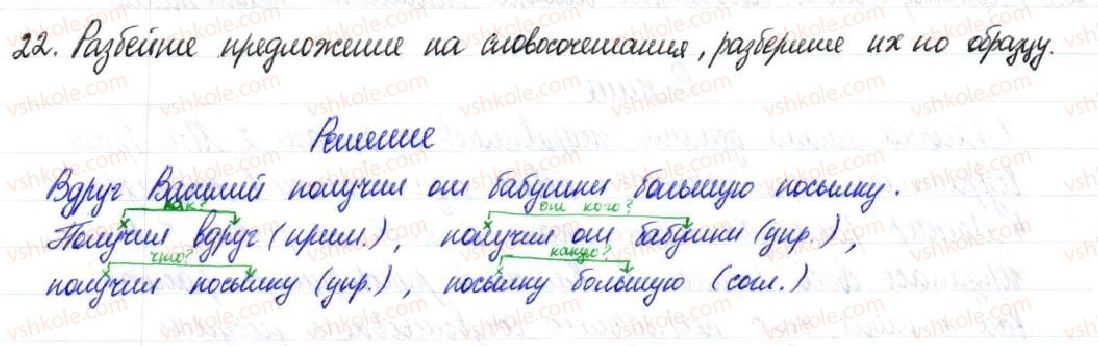 22. Разбейте предложение на словосочетания, разберите их по образцу.
Решение
Вдруг Василий получил от бабушки большую посылку.
как? от кого?
Получил вдруг (прим.), получил от бабушки (упр.),
что? какую?
получил посылку (упр.), посылку большую (согл.)